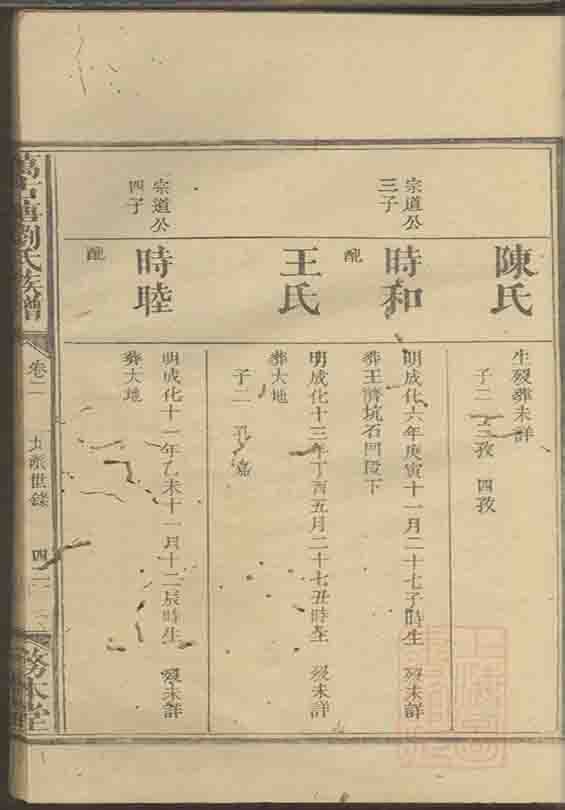 陳氏
生歿葬未詳
子二 三孜 四孜
宗道公
三子
時和
配
明成化六年庚寅十一月二十七子時生 歿未詳
葬王濟坑石凹段下
王氏
明成化十三年丁酉五月二十七丑時生 歿未詳
葬大地
子二 孔 嘉
宗道公
四子
時睦
配
明成化十一年乙未十一月十二辰時生 歿未詳
葬大地
劉氏族譜
卷二
派世錄
四二
務本堂